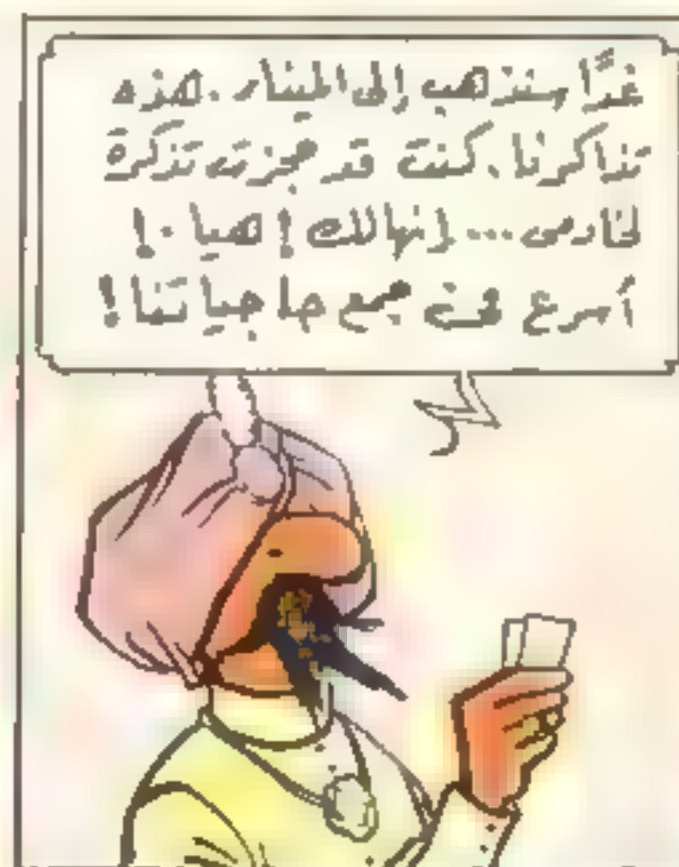 غدًا سنذهب إلى الميناء. هذه
تذاكرنا. كنت قد حجزت تذكرة
لخادمى... إنها لك! هيا.!
أسرع فى جمع حاجياتنا!